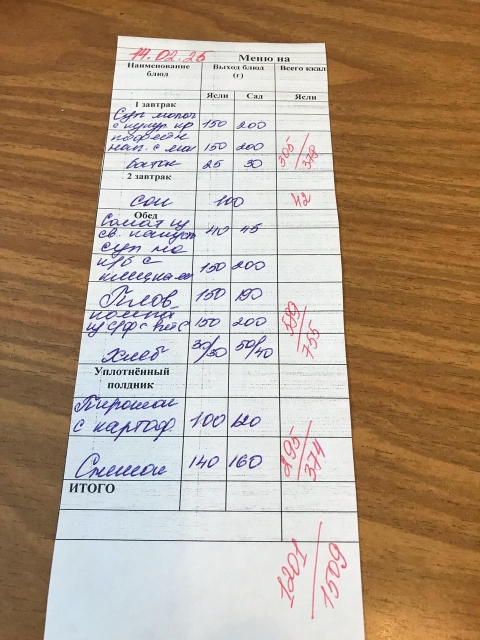 14.02.25 Меню на
Наименование блюд Выход блюд (г) Всего ккал
Ясли Сад Ясли
1 завтрак
Суп молоч
с кукур. кр 150 200
нап. с мол 150 200 305/378
Батон 25 30
2 завтрак
Сок 100 42
Обед
Салат из
св. капуст 40 45
суп на
к/б с
клёцками 150 200
Плов 150 190
компот
из с/ф с вит С 150 200 599/755
Хлеб 30/30 50/40
Уплотнённый
полдник
Пирожок
с картоф. 100 120
Снежок 140 160 295/374
ИТОГО
1201/1509